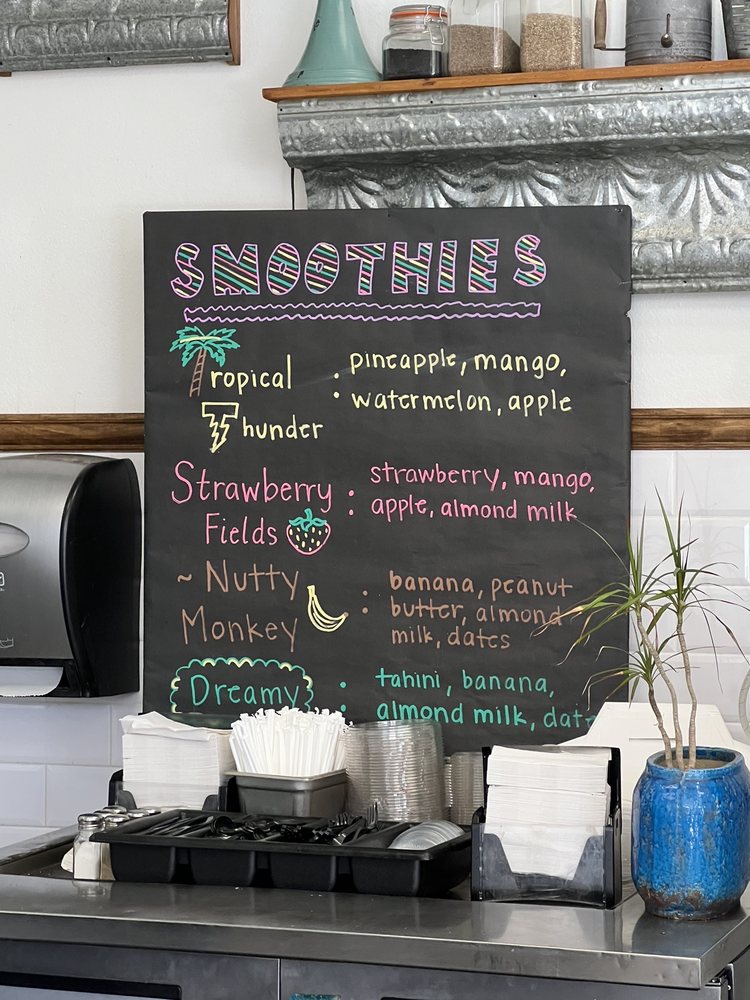 SMOOTHIES
Tropical : pineapple, mango,
Thunder watermelon, apple
Strawberry : strawberry, mango,
Fields apple, almond milk
~ Nutty : banana, peanut
Monkey butter, almond
milk, dates
Dreamy : tahini, banana,
almond milk,